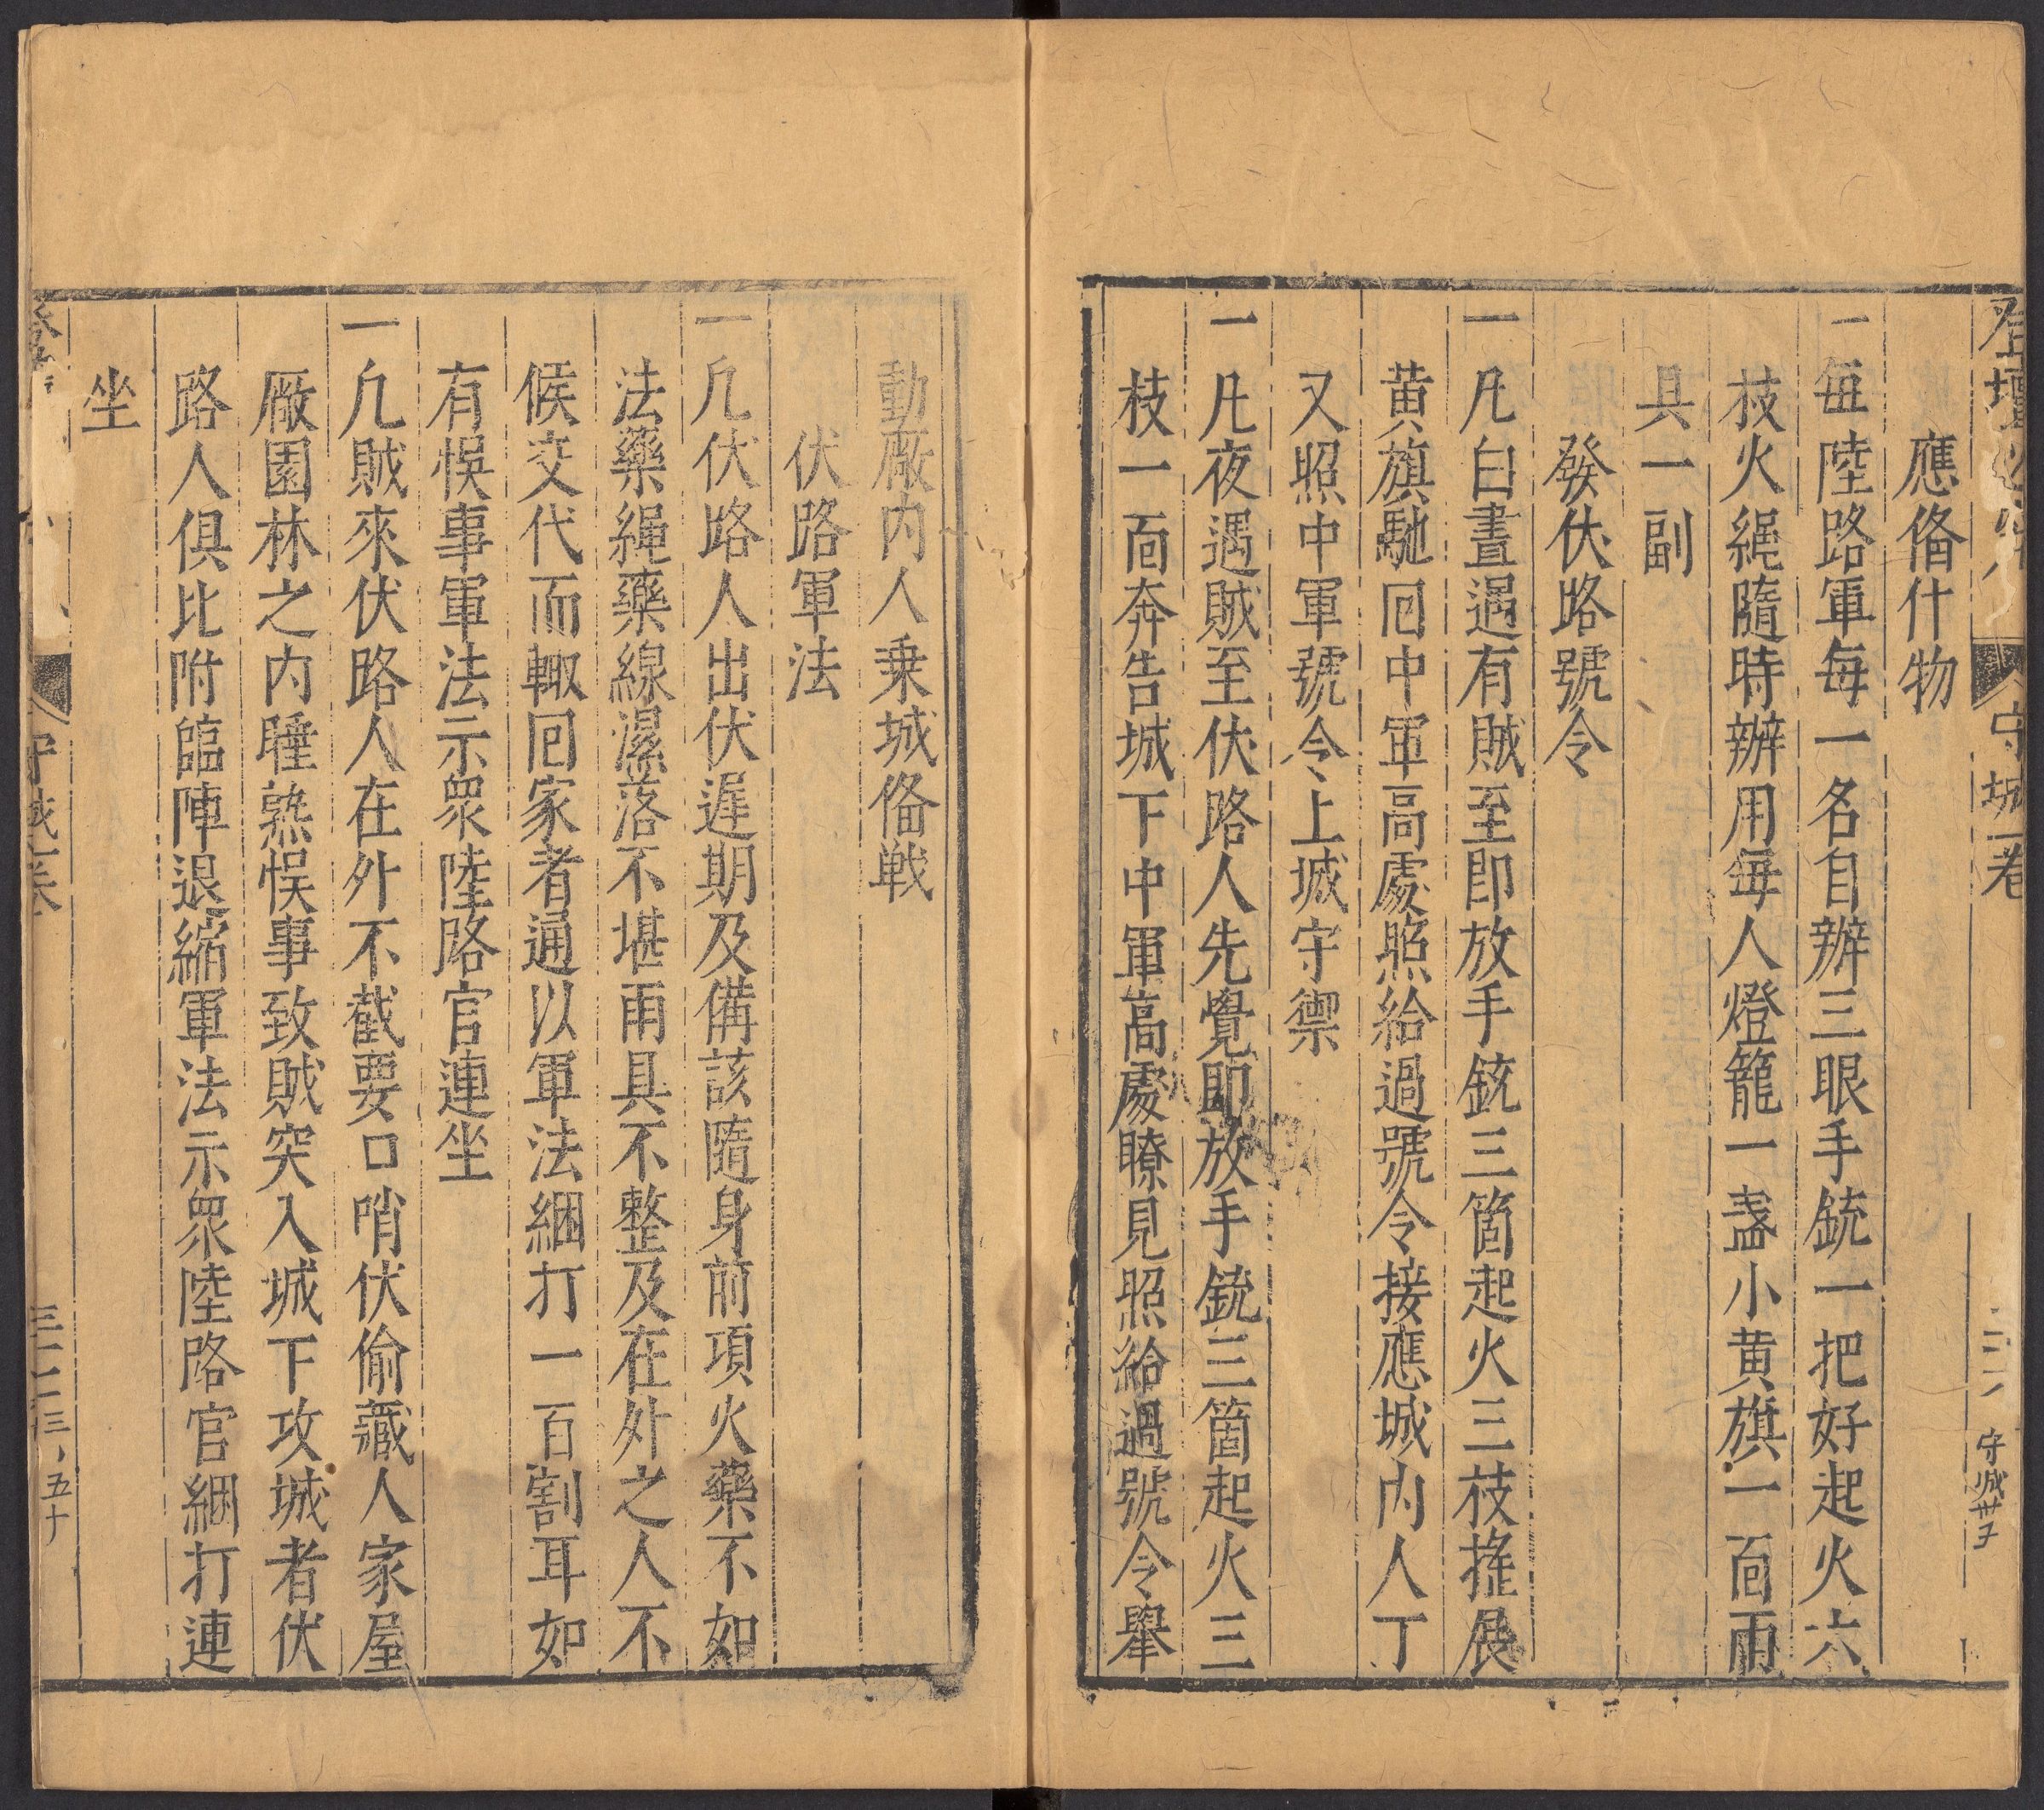 守城一卷
守城
應俻什物
一每陸路軍每一名自辦三眼手銃一把好起火六
枝火繩隨時辦用每人燈籠一盞小黄旗一靣雨
具一副
發伏路號令
一凡白晝遇有賊至即放手銃三箇起火三枝摧展
黄旗馳囘中軍高處照給過號令接應城内人丁
又照中軍號令上城守禦
一凡夜遇賊至伏路人先覺即放手銃三箇起火三
枝一靣奔告城下中軍高處瞭見照給過號令舉
動廠内人乗城俻戦
伏路軍法
一凡伏路人出伏遲期及備該隨身前項火藥不如
法藥繩藥線濕落不堪雨具不整及在外之人不
候交代而輙囘家者通以軍法綑打一百割耳如
有悞事軍法示衆陸路官連坐
一凡賊來伏路人在外不截要口哨伏偷藏人家屋
厰園林之内睡熟悞事致賊突入城下攻城者伏
路人俱比附臨陣退縮軍法示衆陸路官綑打連
坐
五十